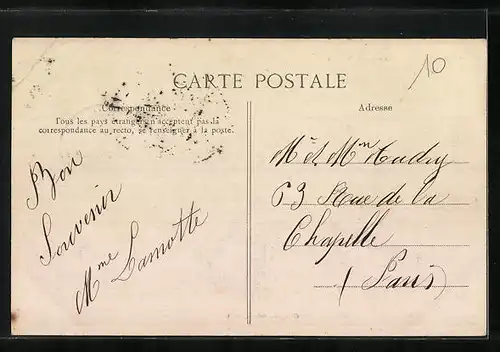 10
CARTE POSTALE
Correspondance
Tous les pays étrangers n'acceptent pas la
correspondance au recto, se renseigner à la poste.
Adresse
Bon
Souvenir
Mme Lamotte
Mr et Mme Audry
63 Rue de la
Chapelle
(Paris)